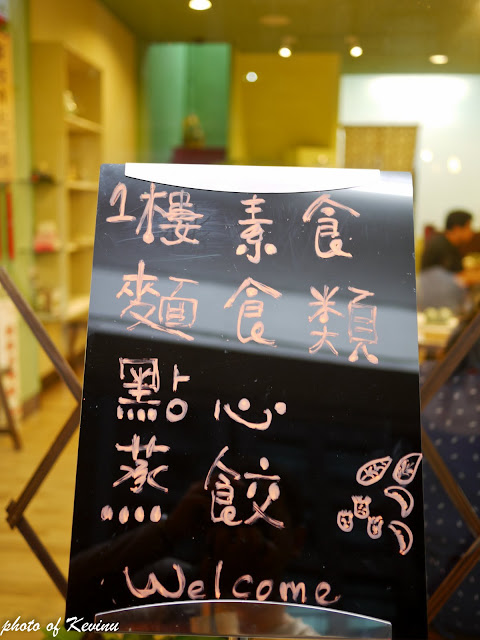 1樓 素食
麵食類
點心
蒸餃
Welcome
photo of Kevinu